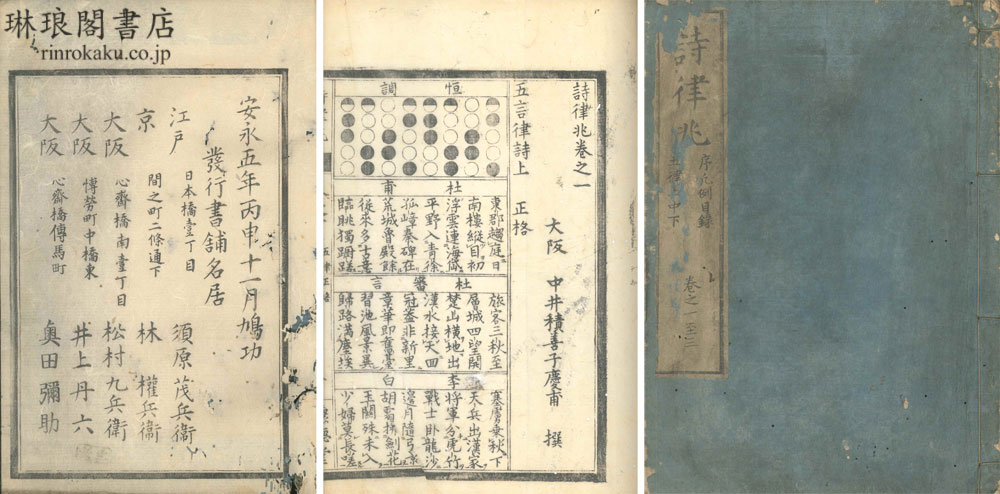 琳琅閣書店
rinrokaku.co.jp
安永五年丙申十一月鳩功
發行書舗名居
江戸 日本橋壹丁目 須原茂兵衞
京 間之町二條通下 林權兵衞
大阪 心齋橋南壹丁目 松村九兵衞
大阪 博勞町中橋東 井上丹六
大阪 心齋橋傳馬町 奥田彌助
詩律兆卷之一
大阪 中井積善子慶甫 撰
五言律詩上 正格
恒調
杜甫
東郡趨庭日
南樓縱目初
浮雲連海岱
平野入青徐
孤嶂秦碑在
荒城魯殿餘
從來多古意
臨眺獨躊躇
杜審言
旅客三秋至
層城四望開
楚山橫地出
漢水接天回
冠蓋非新里
章華即舊臺
習池風景異
歸路滿塵埃
李白
塞虜乘秋下
天兵出漢家
將軍分虎竹
戰士臥龍沙
邊月隨弓影
胡霜拂劍花
玉關殊未入
少婦莫長嗟
詩律兆
序凡例目錄
卷之一至三